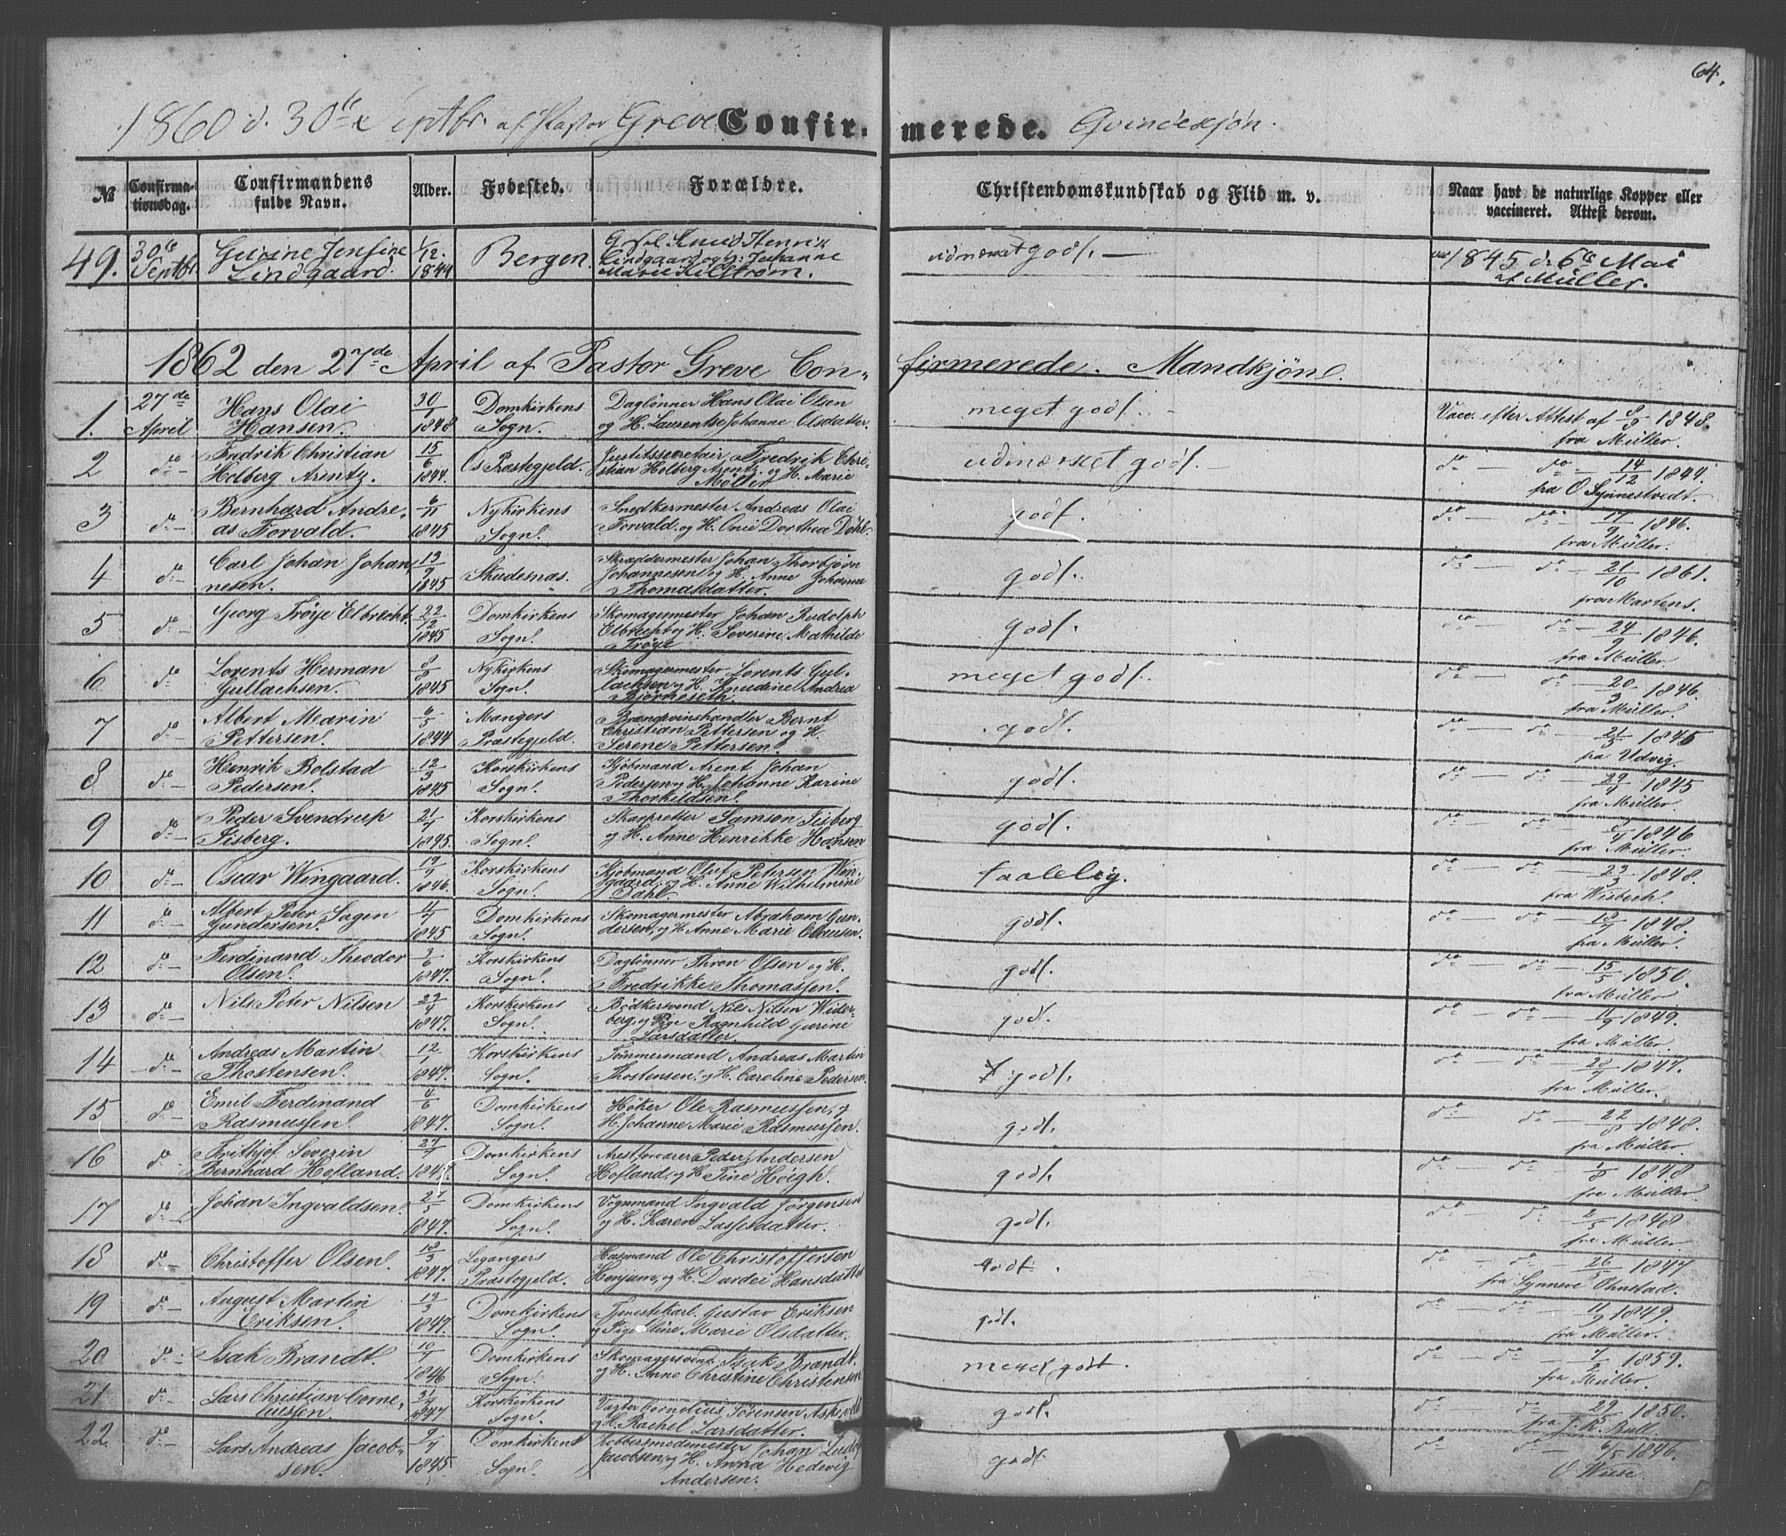 64.
1860 d. 30te Septbr af Pastor Greve Confirmerede. Qvindekjön.
№ Confirmationsdag. Confirmandens fulde Navn. Alder. Fødested. Forældre. Christendomskundskab og Flid m. v. Naar havt de naturlige Kopper eller vaccineret. Attest derom.
49. 30te Septbr Jensine Lindgaard. 1/12 1844 Bergen. Knud Henrik Lindgaard og H. Johanne Marie udmærket godt. 1845 d. 6te Mai af Müller.
1862 den 27de April af Pastor Greve Confirmerede. Mandkjön.
1. 27de April Hans Olai Hansen. 30/1 1848 Domkirkens Sogn. Daglönner Hans Olai Olsen og H. Laurentse Johanne Olsdatter. meget godt. Vacc. efter Attest af 1848. fra Müller.
2 do Fredrik Christian Holberg Arentz. 15/6 1844. Os Præstegjeld. Justitssecretair Fredrik Christian Holberg Arentz og H. Marie udmærket godt. do do 14/12 1844. fra O Synnestvedt.
3 do Bernhard Andreas Forvald. 6/11 1845 Nykirkens Sogn. Snedkermester Andreas Olai Forvald og H. Dorthea godt. do do 17/9 1846. fra Müller.
4 do Carl Johan Johannesen. 13/9 1845 Skudesnæs. Skræddermester Johan Thorbjörn Johannesen og H. Anne Johanne Thomasdatter. godt. do do 21/10 1861. fra Martens.
5 do Georg Tröye Elbrecht. 22/12 1845 Domkirkens Sogn. Skomagermester Johan Rudolph Elbrecht og H. Severine Mathilde Tröye godt. do do 24/9 1846. fra Müller
6 do Lorents Herman Gullachsen. 1845 Nykirkens Sogn. Skomagermester Lorents Gullachsen og H. Knudine Andrea meget godt. do do 1846. fra Müller.
7 do Albert Marin Pettersen. 6/5 1844 Mangers Præstegjeld. Brændevinshandler Bernt Christian Pettersen og H. Serene Pettersen. godt. do do 21/3 1845 fra Udvig.
8 do Henrik Bolstad Pedersen. 12/3 1845 Korskirkens Sogn. Kjöbmand Arent Johan Pedersen og H. Johanne Karine Thorkildsen. godt. do do 1845 fra Müller.
9 do Peder Svendrup Sisberg. 1845. Korskirkens Sogn. Skarpretter Samson Sisberg og H. Anne Henrikke Hansen godt. do do 1846 fra Müller.
10 do Oscar Wingaard. 1846. Korskirkens Sogn. Kjöbmand Oluf Petersen Wingaard og H. Anne Wilhelmine Dahl. taalelig. do do 1848. fra Wisbech.
11 do Albert Peter Sagen Gundersen. 1845 Domkirkens Sogn. Skomagermester Abraham Gundersen, og H. Anne Marie Clausen. godt. do do 1848. fra Müller.
12 do Ferdinand Theodor Olsen. 1847. Korskirkens Sogn. Daglönner Thron Olsen og H. Fredrikke Thomassen. godt. do do 15/5 1850. fra Müller.
13 do Nils Peter Nilsen 1847. Korskirkens Sogn. Bödkersvend Nils Nilsen Widerberg, og Pige Ragnhild Gurine Larsdatter. godt. do do 11/9 1849. fra Müller.
14 do Andreas Martin Thostensen. 12/1 1847. Korskirkens Sogn. Tömmermand Andreas Martin Thostensen, og H. Caroline Pedersen. godt. do do 1847. fra Müller.
15 do Emil Ferdinand Rasmussen. 4/6 1847. Domkirkens Sogn. Höker Ole Rasmussen, og H. Johanne Marie Rasmussen. godt. do do 22/8 1848. fra Müller.
16 do Frithjof Severin Bernhard Hofland. 1847. Domkirkens Sogn. Arestforvarer Peder Andersen Hofland, og H. Tine Höigh. godt. do do 1/8 1848 fra Müller.
17 do Johan Ingvaldsen. 21/5 1847. Domkirkens Sogn. Vognmand Ingvald Jörgensen og H. Karen Lassesdatter. godt. do do 2/5 1848 fra Müller.
18 do Christoffer Olsen. 18/3 1847. Leganger's Præstegjeld. Husmand Ole Christoffersen Henjum, og H. Dardei Hansdatter godt. do do 26/5 1847 fra Synneve Ohnstad.
19 do August Martin Eriksen. 13/3 1847. Domkirkens Sogn. Tjenestekarl Gustav Eriksen og Pige Marie Olsdatter. godt. do do 11/9 1849. fra Müller.
20 do Isak Brandt. 10/7 1846 Domkirkens Sogn. Skomagersvend Isak Brandt. og H. Anne Christine Christensen meget godt. do do 1859. fra Müller.
21 do Lars Christian Corneliussen 1847 Korskirkens Sogn. Vægter Cornelius Sörensen og H. Rachel Larsdatter. godt. do do 1850. fra J. R. Bull.
22. do Lars Andreas Jacobsen. 1845 Domkirkens Sogn. Kobbersmedmester Johan Jacobsen, og H. Anna Hedevig Andersen. godt do do 6/5 1846. O Wiese.